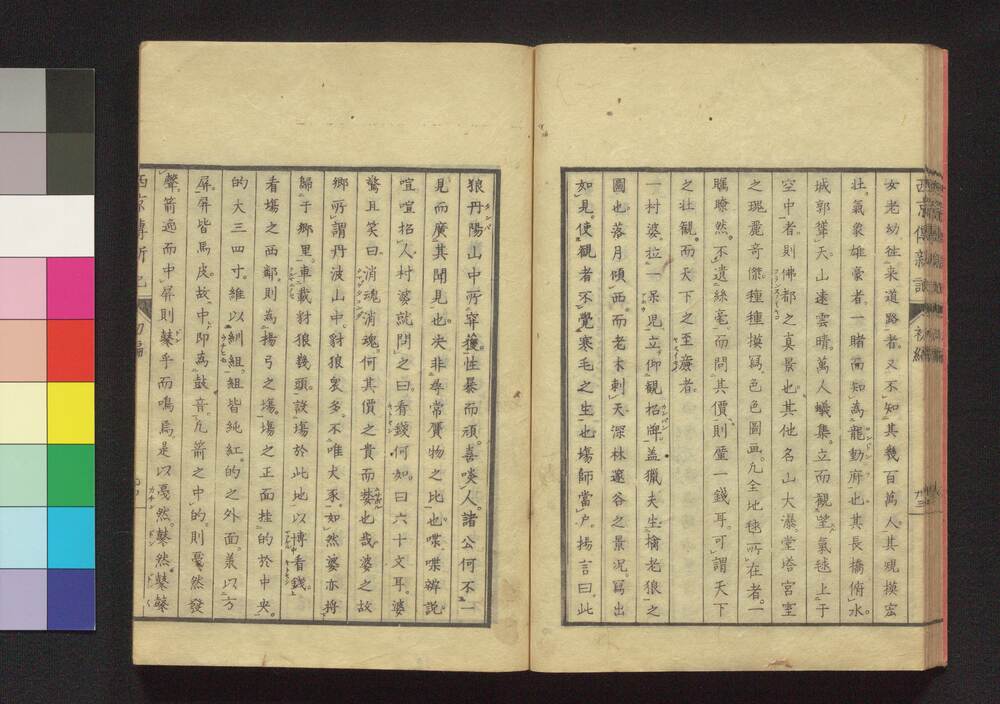 西京傳新記 初編
女老幼往來道路者。又不知其幾百萬人其規摸宏
壮。氣象雄豪者。一睹而知為龍動府也其長橋俯水。
城郭聳天。山遠雲晴。萬人蟻集。立而觀望氣毬上于
空中者。則佛都之真景也其他名山大瀑堂塔宮室
之瑰麗奇傑。種種摸寫。色色圖画。凡全地毬所在者。一
矚瞭然。不遺絲毫。而問其價則僅一錢耳。可謂天下
之壮觀。而天下之至廉者。
一村婆拉一呆児立仰觀招牌。盖獵夫生擒老狼之
圖也落月傾西。而老木刺天深林邃谷之景况寫出
如見。使觀者不覺寒毛之生也塲師當戸。揚言曰。此
狼丹陽山中所穽獲性暴而頑。喜啖人。諸公何不一
見而廣其聞見也决非尋常贋物之比也喋喋辯說。
喧喧招人村婆就問之曰。看錢何如。曰六十文耳。婆
驚且笑曰。消魂消魂。何其價之貴而㜑也哉婆之故
郷所謂丹波山中。豺狼衆多。不唯犬豕。如然婆亦将
歸于郷里。車載豺狼幾頭。設塲於此地以博看錢。
看塲之西鄰則為揚弓之塲塲之正面挂的於中央。
的大三四寸。維以紃組。組皆純紅。的之外面。羕以方
屏。屏皆馬皮。故中即為鼓音。凡箭之中的。則戞然發
聲。箭逸而中屏則鼕乎而鳴焉。是以戞然。鼕然鼕鼕
西京傳新記 初編